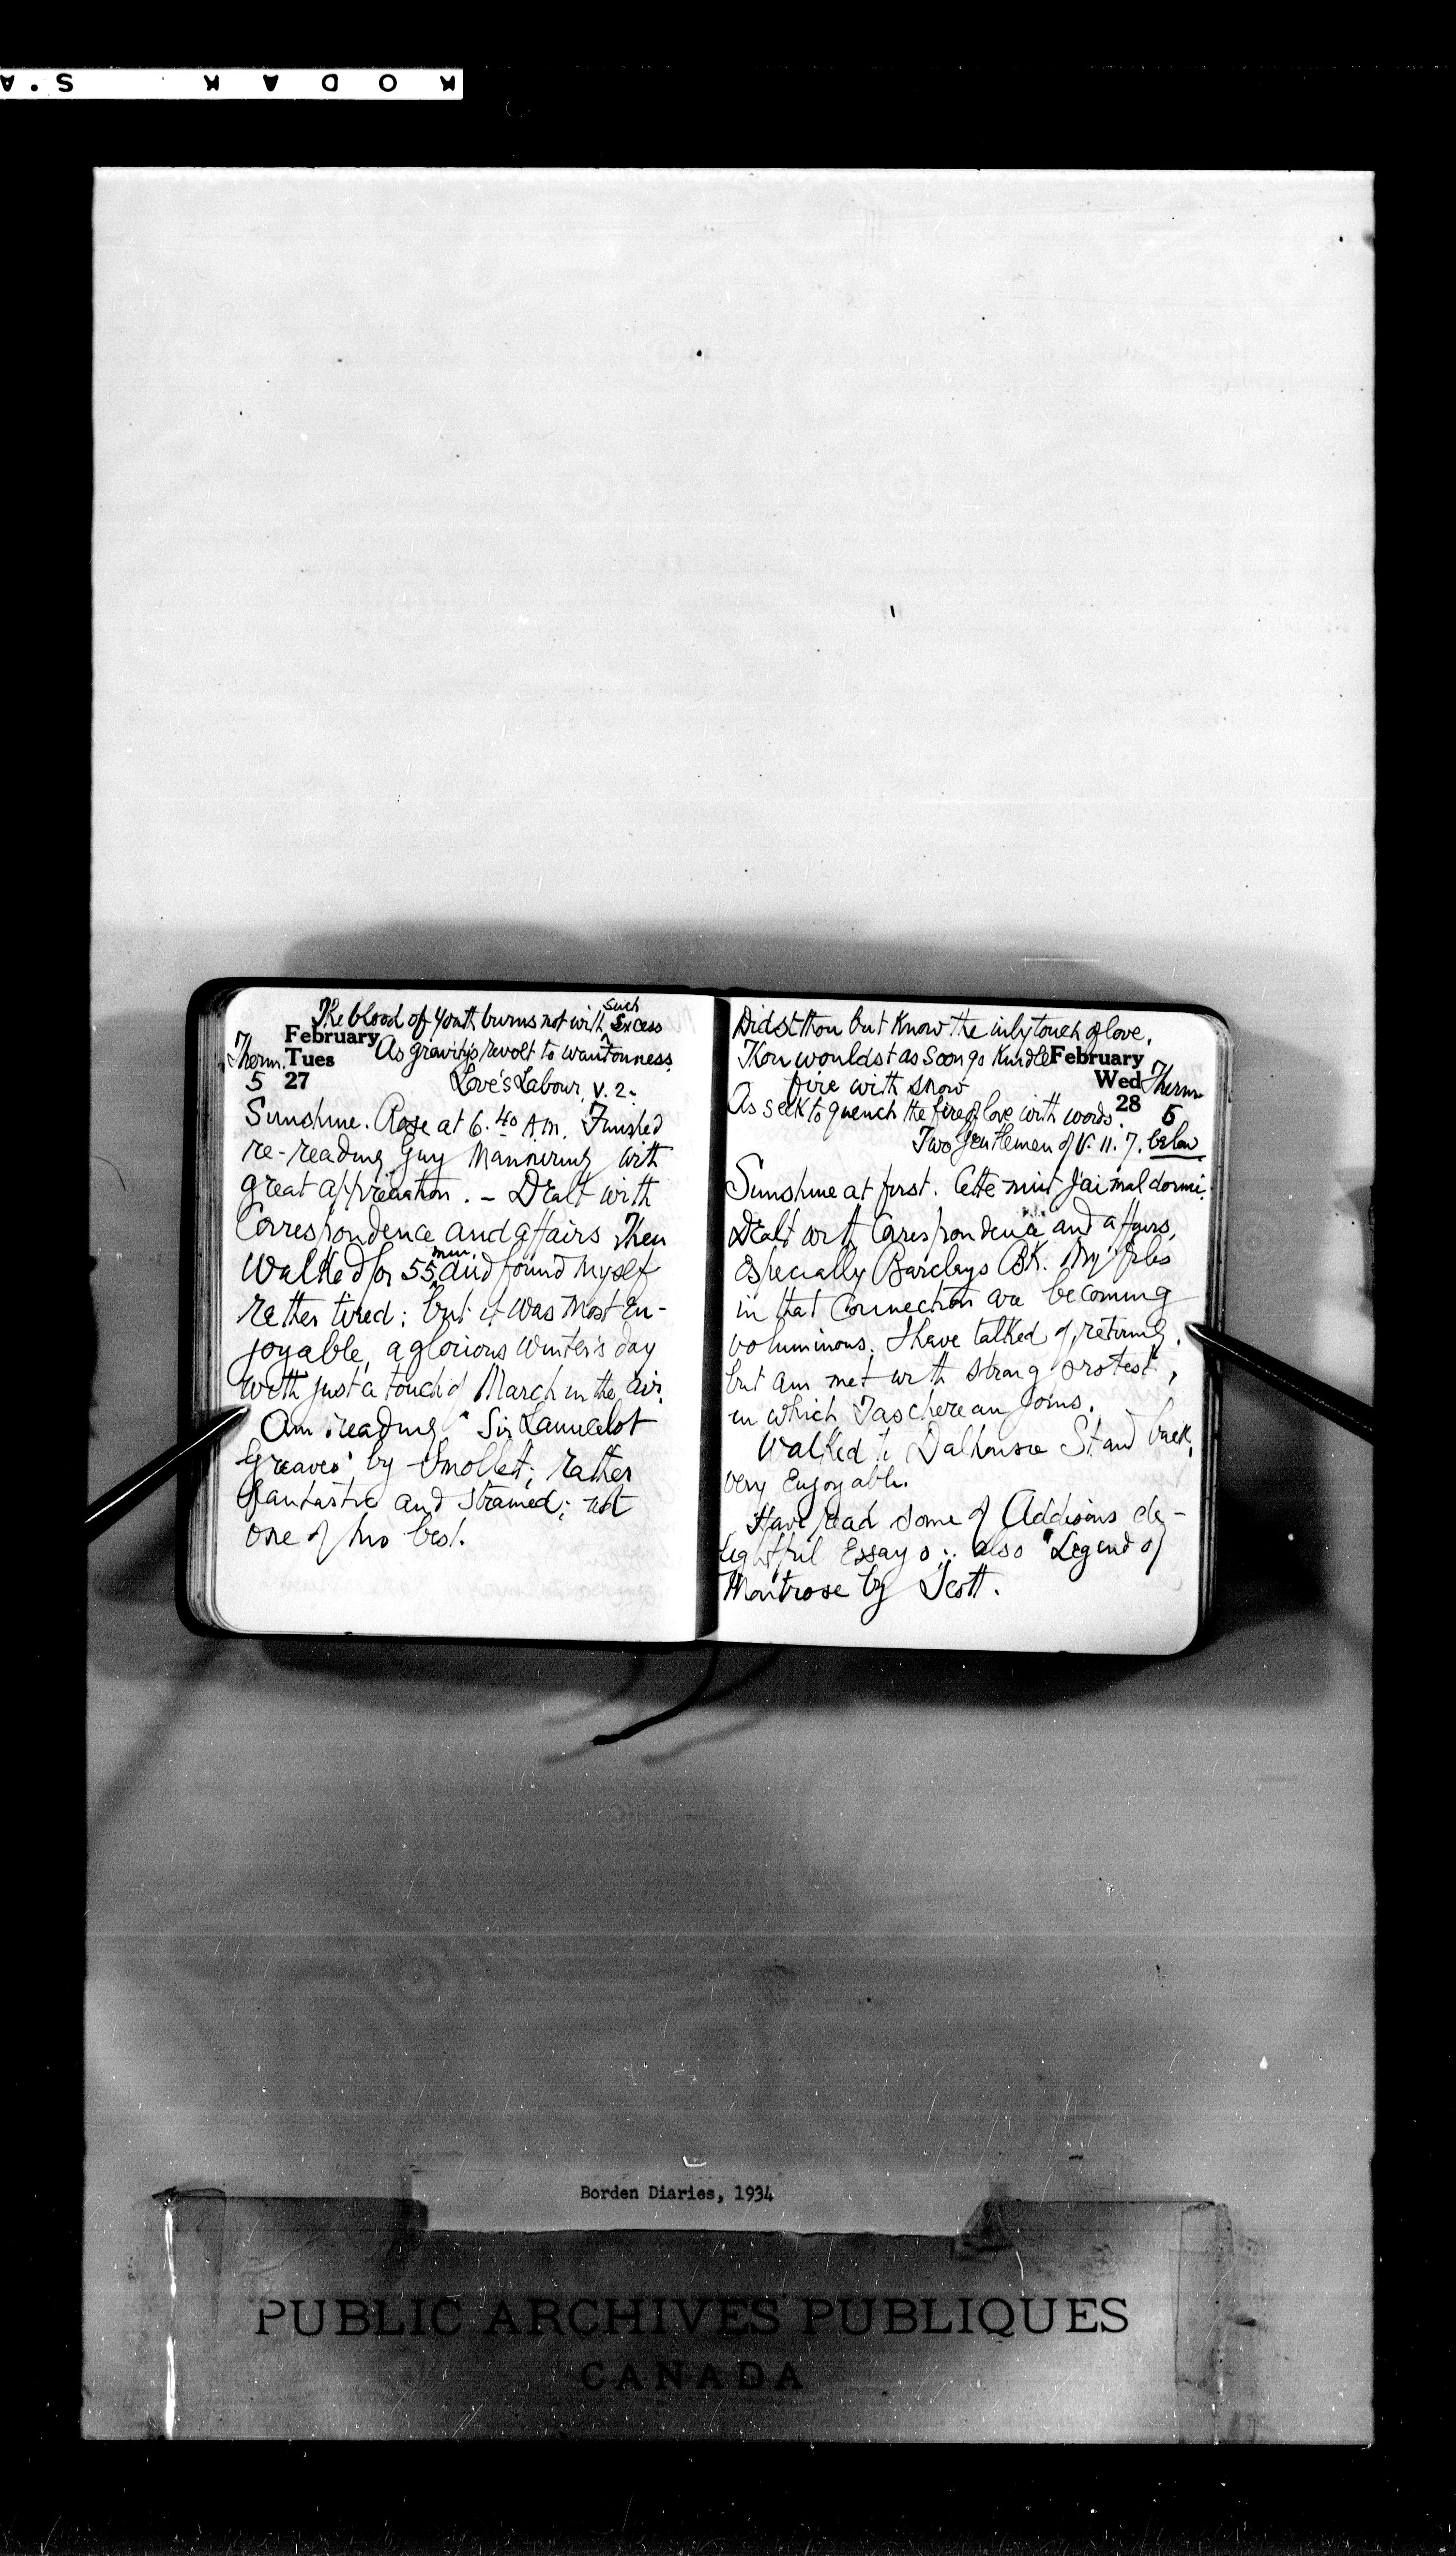 KODAK S.A
The blood of youth burns not with such Excess
February
As gravity's revolt to wantonness.
Therm. Tues
5 27
Love's Labour, V. 2.
Sunshine. Rose at 6.40 A.M. Finished
re-reading Guy Mannering with
great appreciation. – Dealt with
Correspondence and affairs Then
Walked for 55 min. and found myself
rather tired; but it was most en-
joyable, a glorious Winter's day
with just a touch of March in the air.
Am reading "Sir Launcelot
Greaves" by Smollet; rather
fantastic and strained; not
one of his best.
Didst thou but know the inly touch of love,
Thou wouldst as soon go kindle
fire with snow
February
Wed
28
Therm
5
below
As seek to quench the fire of love with words.
Two Gentlemen of V. II. 7.
Sunshine at first. Cette nuit j'ai mal dormi.
Dealt with Correspondence and affairs,
especially Barclays BK. My files
in that Connection are becoming
voluminous. I have talked of retiring,
but am met with strong protest,
in which Taschereau joins.
Walked to Dalhousie St and back,
very enjoyable.
Have read some of Addisons de-
lightful Essays; also "Legend of
Montrose by Scott.
Borden Diaries, 1934
PUBLIC ARCHIVES PUBLIQUES
CANADA